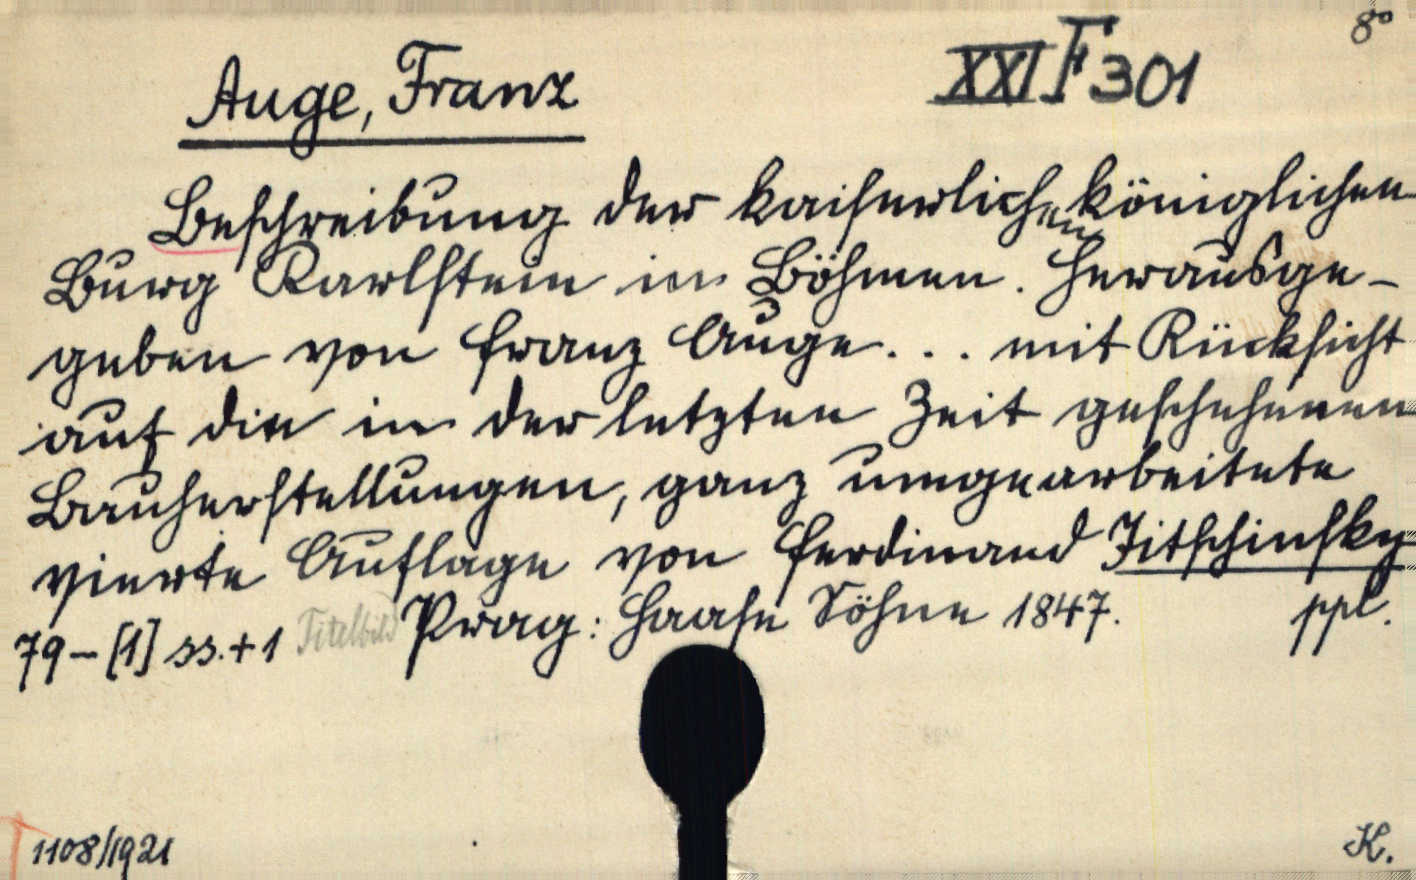 8°
Auge, Franz
XXI F 301
Beschreibung der kaiserlichen königlichen
Burg Karlstein in Böhmen. Herausge-
geben von Franz Auge... mit Rücksicht
auf die in der letzten Zeit geschehenen
Bauherstellungen, ganz umgearbeitete
vierte Auflage von Ferdinand Jitschinsky
Prag: Haase Söhne 1847. ppl.
79-[1] ss.+1 Titelbild
1108/1921
K.